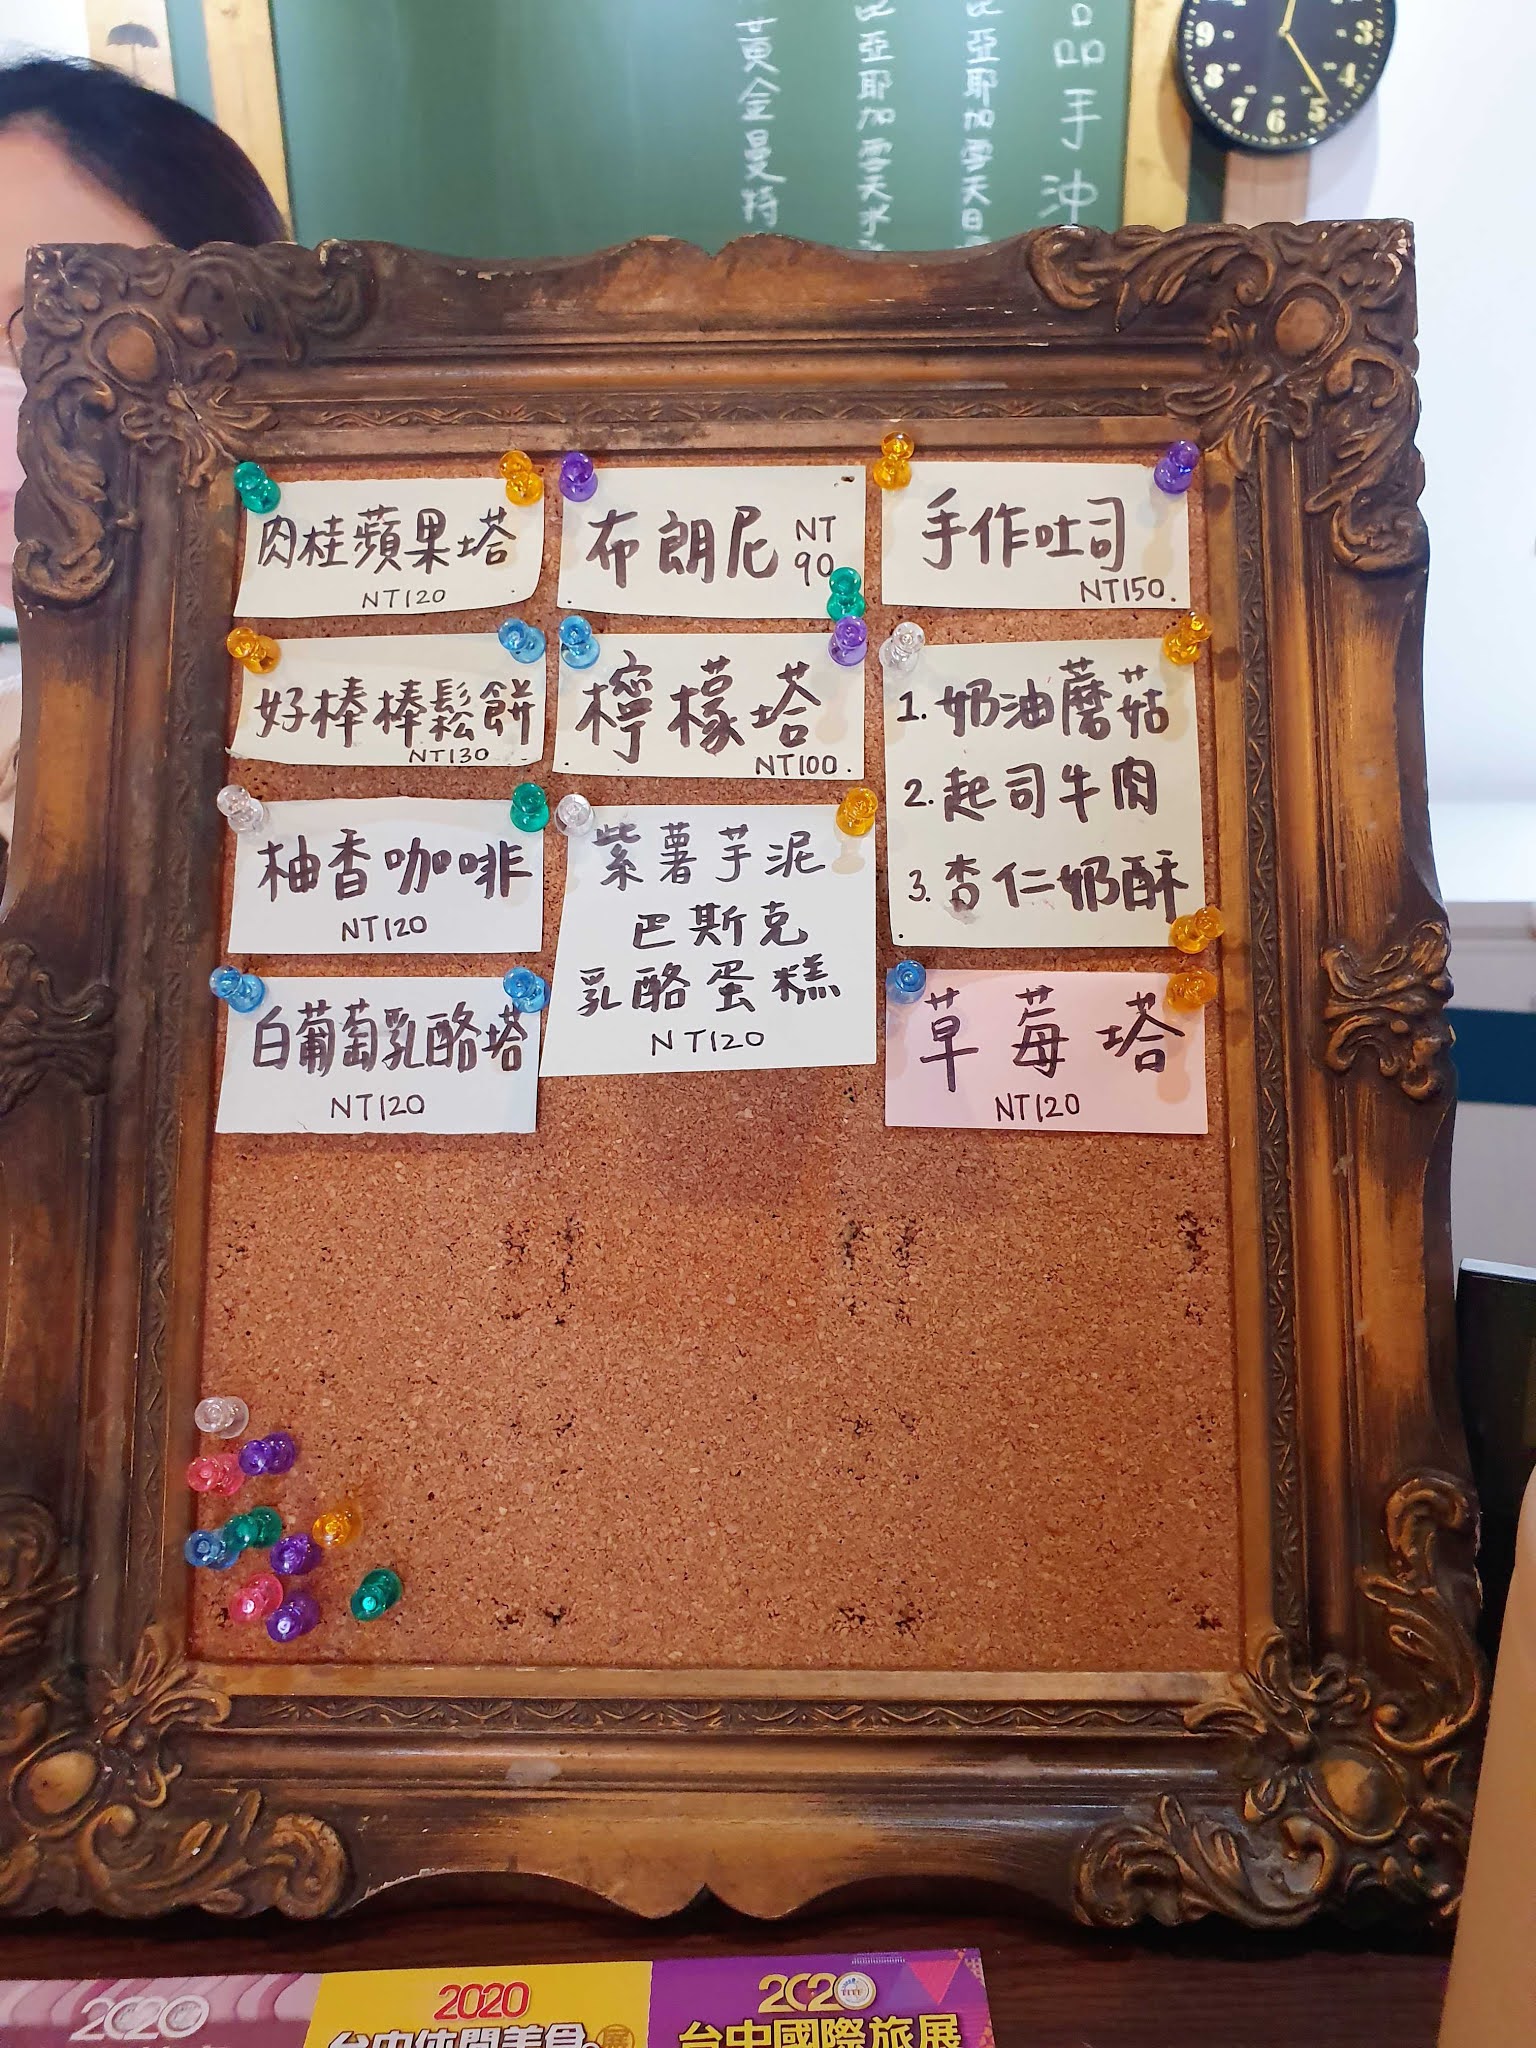 黃金曼特
亞耶加雪夫水
亞耶加雪夫日
品手沖
9
8
7
6
5
4
3
肉桂蘋果塔
NT120
布朗尼 NT
90
手作吐司
NT150.
好棒棒鬆餅
NT130
檸檬塔
NT100.
1. 奶油蘑菇
2. 起司牛肉
3. 杏仁奶酥
柚香咖啡
NT120
紫薯芋泥
巴斯克
乳酪蛋糕
NT120
白葡萄乳酪塔
NT120
草莓塔
NT120
2020
2020
台中休閒美食展
2020
台中國際旅展